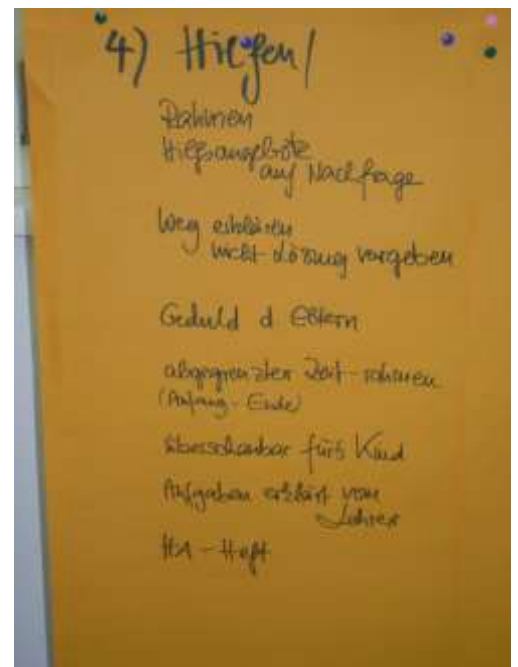 4) Hilfen/
Rahmen
Hilfsangebote
auf Nachfrage
Weg erklären
nicht Lösung vorgeben
Geduld d Eltern
abgegrenzter Zeit-rahmen
(Anfang - Ende)
überschaubar fürs Kind
Aufgaben erklärt vom
Lehrer
HA - Heft